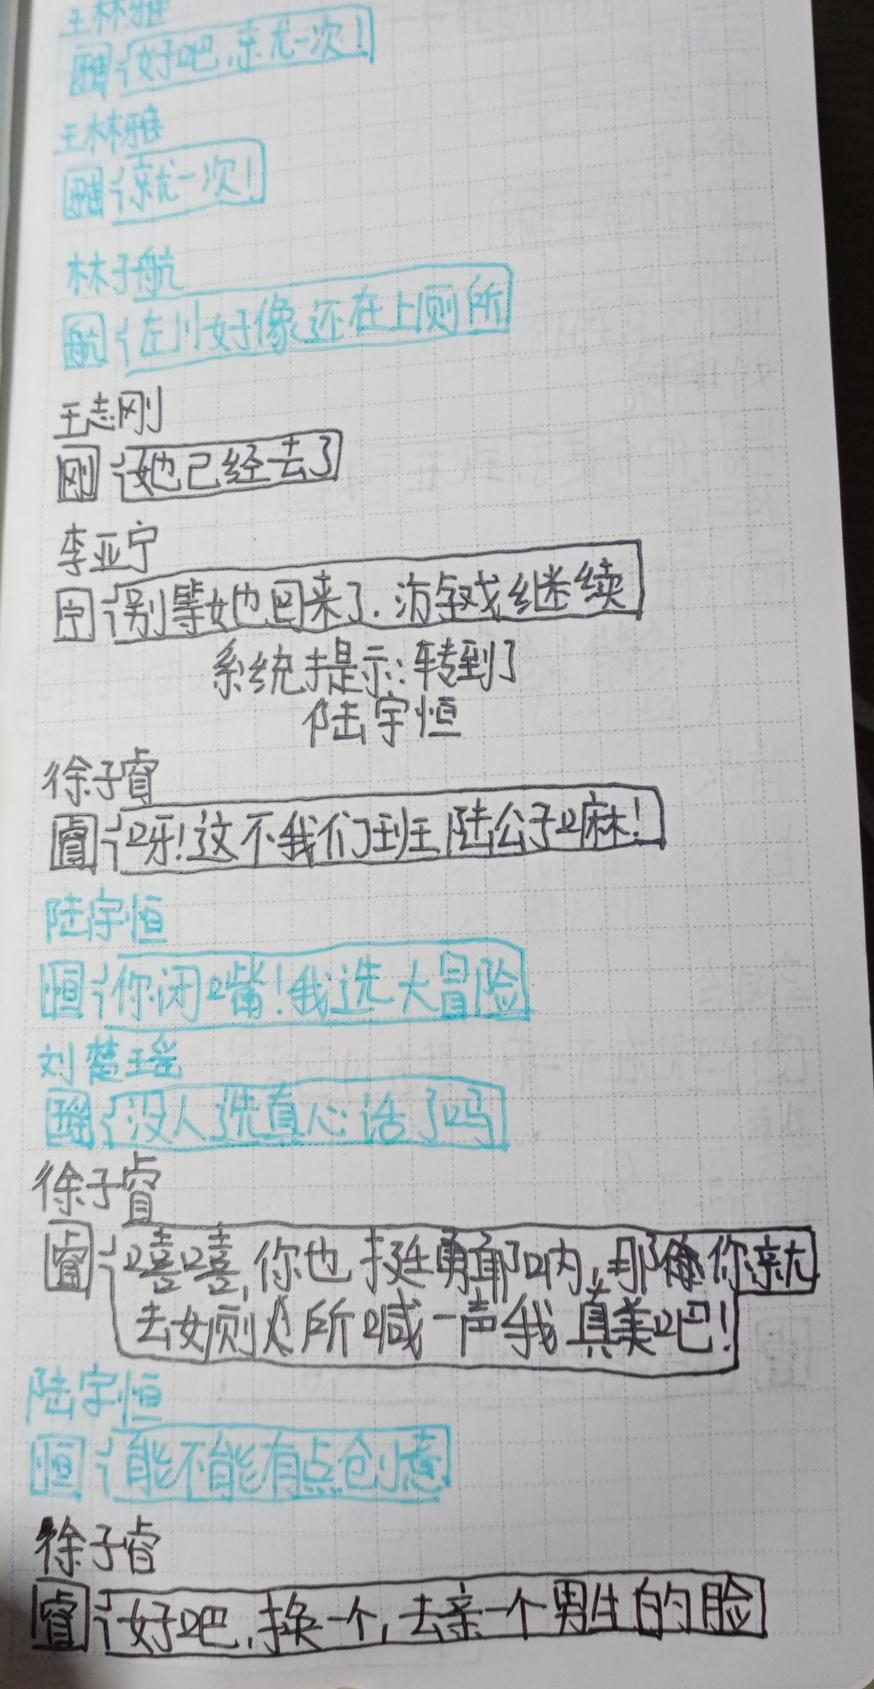 王林雅
雅 好吧,就一次!
王林雅
雅 就一次!
林子航
航 左川好像还在上厕所
王志刚
刚 她已经去了
李亚宁
宁 别等她回来了.游戏继续
系统提示:转到了
陆宇恒
徐子睿
睿 呀!这不我们班陆公子嘛!
陆宇恒
恒 你闭嘴!我选大冒险
刘楚瑶
瑶 没人选真心话了吗
徐子睿
睿 嘻嘻,你也挺勇耶呐,那你就
去女厕所喊一声我真美吧!
陆宇恒
恒 能不能有点创意
徐子睿
睿 好吧,换一个,去亲一个男生的脸